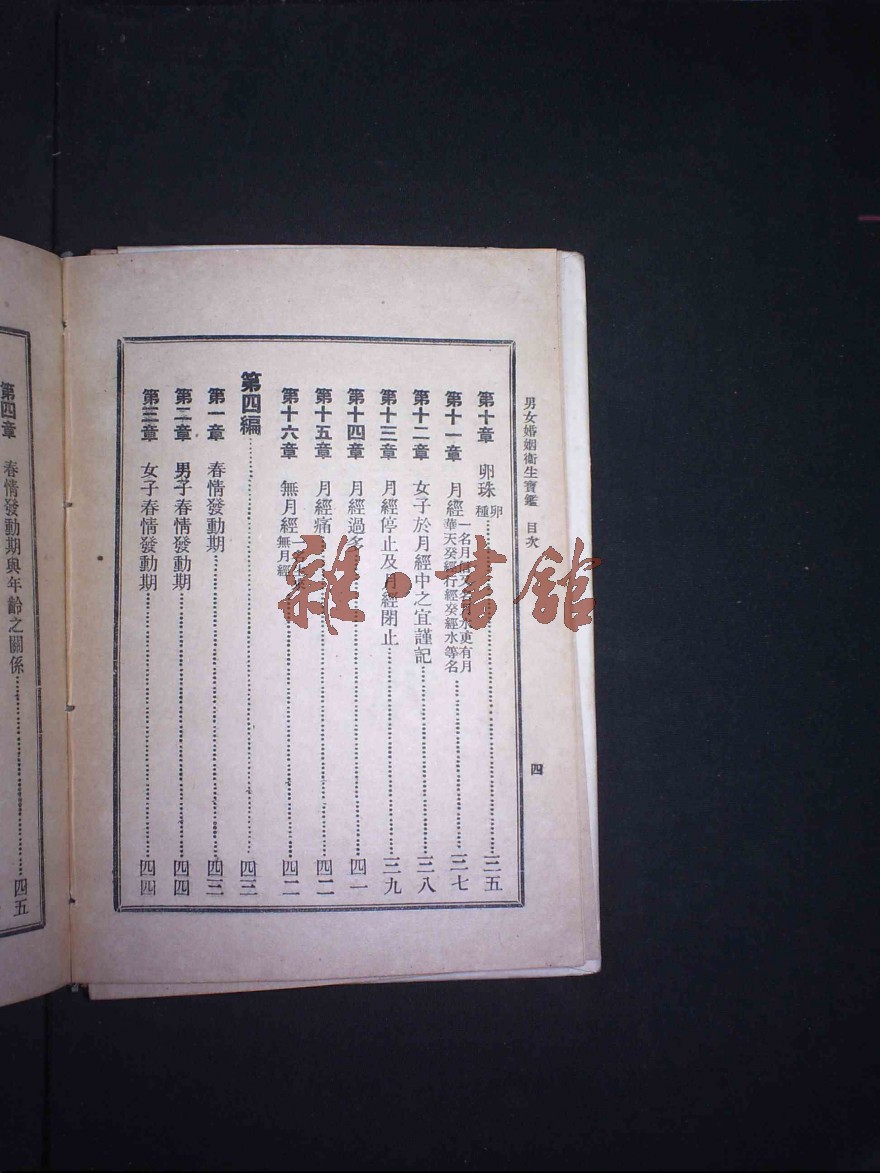 男女婚姻衛生寶鑑　目次
四
第十章　卵珠 卵種 三五
第十一章　月經 一名月 水更有月華天癸經行經癸經水等名 三七
第十二章　女子於月經中之宜謹記 三八
第十三章　月經停止及月經閉止 三九
第十四章　月經過多 四一
第十五章　月經痛 四二
第十六章　無月經 一名 無月經 四二
第四編 四三
第一章　春情發動期 四三
第二章　男子春情發動期 四四
第三章　女子春情發動期 四四
第四章　春情發動期與年齡之關係 四五
雜·書館